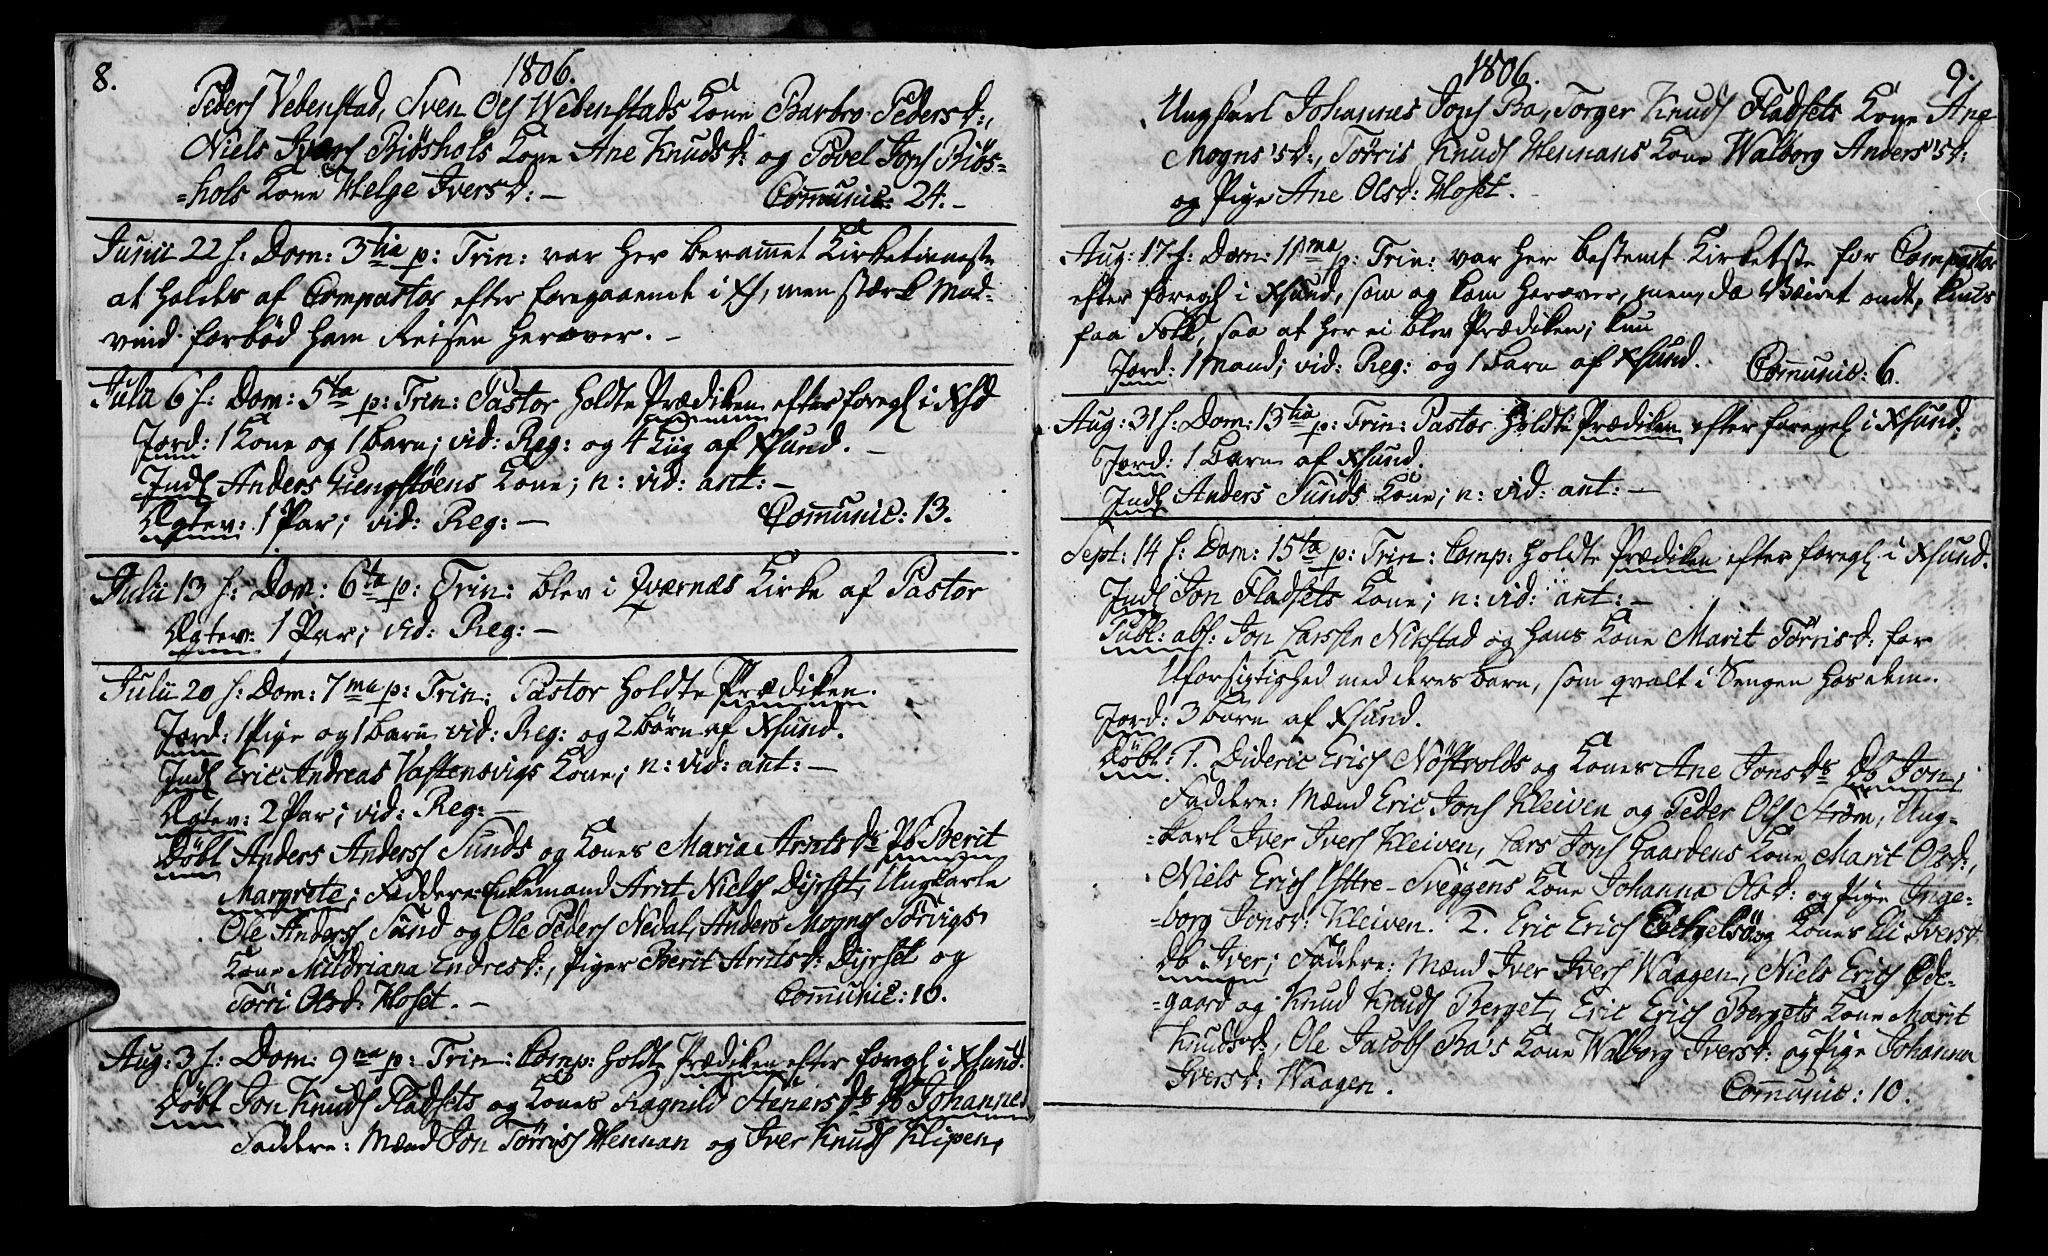 8.
1806.
Peders Vebenstad, Sven Ols Webenstads Kone Barbro Pedersd:,
Niels Ivers Biøshols Kone Ane Knudsd: og Povel Jons Biøs-
-hols Kone Helge Iversd: –
Comunic: 24. –
Junii 22 h: Dom: 3tia p: Trin: var her beramet Kirketieneste
at holdes af Compastor efter foregaaende i Xs, men stærk Mod-
vind forbød ham Reisen herover. –
Julii 6 h: Dom: 5ta p: Trin: Pastor holdte Prædiken efter foregl i Xsd
Jord: 1 Kone og 1 barn; vid: Reg: og 4 Liig af Xsund. –
Indl Anders Gengstøens Kone; n: vid: ant: –
Ægtev: 1 Par; vid: Reg: –
Comunic: 13.
Julii 13 h: Dom: 6ta p: Trin: blev i Qværnæs Kirke af Pastor
Ægtev: 1 Par; vid: Reg: –
Julii 20 h: Dom: 7ma p: Trin: Pastor holdte Prædiken.
Jord: 1 Pige og 1 barn vid: Reg: og 2 børn af Xsund.
Indl Eric Andreas Vastensvigs Kone; n: vid: ant: –
Ægtev: 2 Par; vid: Reg: –
Døbt Anders Anders Sunds og Kones Maria Arntsds Pb Berit
Margrete; Faddere: Enkemand Arnt Niels Dyrset, Ungkarle
Ole Anders Sund og Ole Peders Nedal, Anders Mogns Tørvigs
Kone Mildriana Endresd:, Piger Berit Arntsd: Dyrset og
Tørri Olsd: Hoset. –
Comunic: 10.
Aug: 3 h: Dom: 9na p: Trin: Comp: holdte Prædiken efter foregl i Xsund.
Døbt Jon Knuds Fladsets og Kones Ragnild Stenersds Db Johannes
Faddere: Mænd Jon Tørris Hennan og Iver Knuds Klipen,
1806.
9.
Ungkarl Johannes Jons Ba, Torger Knuds Fladsets Kone Ane
Mogns'sd:, Tørris Knuds Hennans Kone Walborg Anders'sd:
og Pige Ane Olsd: Hoset. –
Aug: 17 h: Dom: 11ma p: Trin: var her bestemt Kirketste for Compastor
efter foregl i Xsund, som og kom herover, men, da Væiret ondt,
faa Folk, saa at her ei blev Prædiken; kun
Jord: 1 Mand; vid: Reg: og 1 barn af Xsund.
Comunic: 6.
Aug: 31 h: Dom: 13tia p: Trin: Pastor holdte Prædiken efter foregl i Xsund.
Jord: 1 barn af Xsund.
Indl Anders Sunds Kone; n: vid: ant: –
Sept: 14 h: Dom: 15ta p: Trin: Comp: holdte Prædiken efter foregl i Xsund.
Indl Jon Fladsets Kone; n: vid: ant: –
Publ: abs: Jon Larssen Nikstad og hans Kone Marit Tørrisd: for
Uforsigtighed med deres barn, som qvalt i Sengen hos dem.
Jord: 3 barn af Xsund.
Døbt: 1. Dideric Erics Nøstvolds og Kones Ane Jonsds Db Jon,
Faddere: Mænd Eric Jons Kleiven og Peder Ols Strøm, Ung-
-karl Iver Ivers Kleiven, Lars Jons Gaardens Kone Marit Olsd:,
Niels Erics Yttre-Sveggens Kone Johanna Olsd: og Pige Inge-
-borg Jonsd: Kleiven. 2. Eric Erics og Kones Eli Iversd:
Db Iver; Faddere: Mænd Iver Ivers Waagen, Niels Erics Øde-
-gaard og Knud Knuds Berget, Eric Erics Bergets Kone Marit
Knudsd:, Ole Jacobs Ba's Kone Walborg Iversd: og Pige Johanna
Iversd: Waagen.
Comunic: 10.